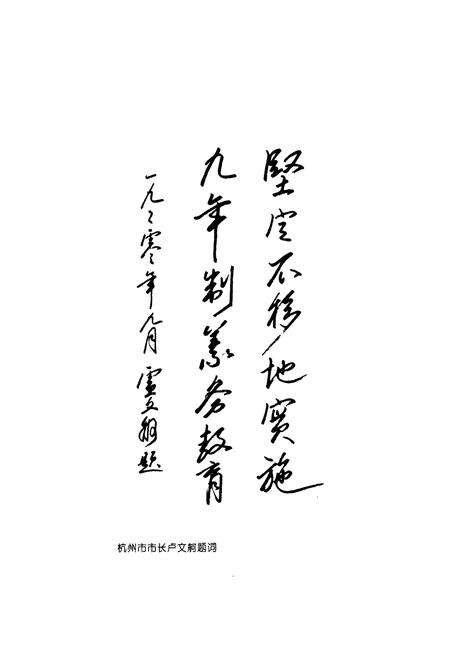 堅定不移地實施
九年制義务教育
一九九零年九月 盧文舸題
杭州市市长卢文舸题词